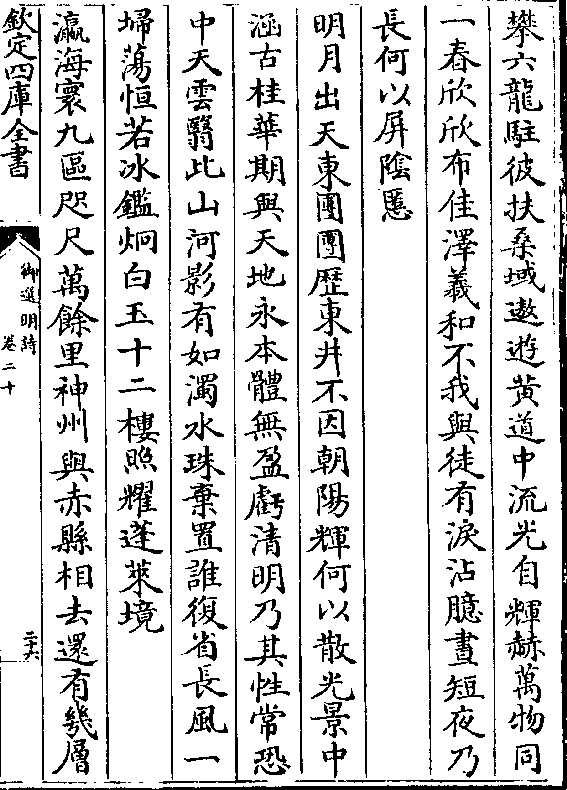 攀六龍駐彼扶桑域遨遊黄道中流光自輝赫萬物同
一春欣欣布佳澤羲和不我與徒有淚沾臆晝短夜乃
長何以屏陰慝
明月出天東團團歴東井不因朝陽輝何以散光景中
涵古桂華期與天地永本體無盈虧清明乃其性常恐
中天雲翳此山河影有如濁水珠棄置誰復省長風一
埽蕩恒若冰鑑炯白玉十二樓照耀蓬萊境
瀛海寰九區咫尺萬餘里神州與赤縣相去還有幾層
欽定四庫全書
御選明詩
卷二十
二六